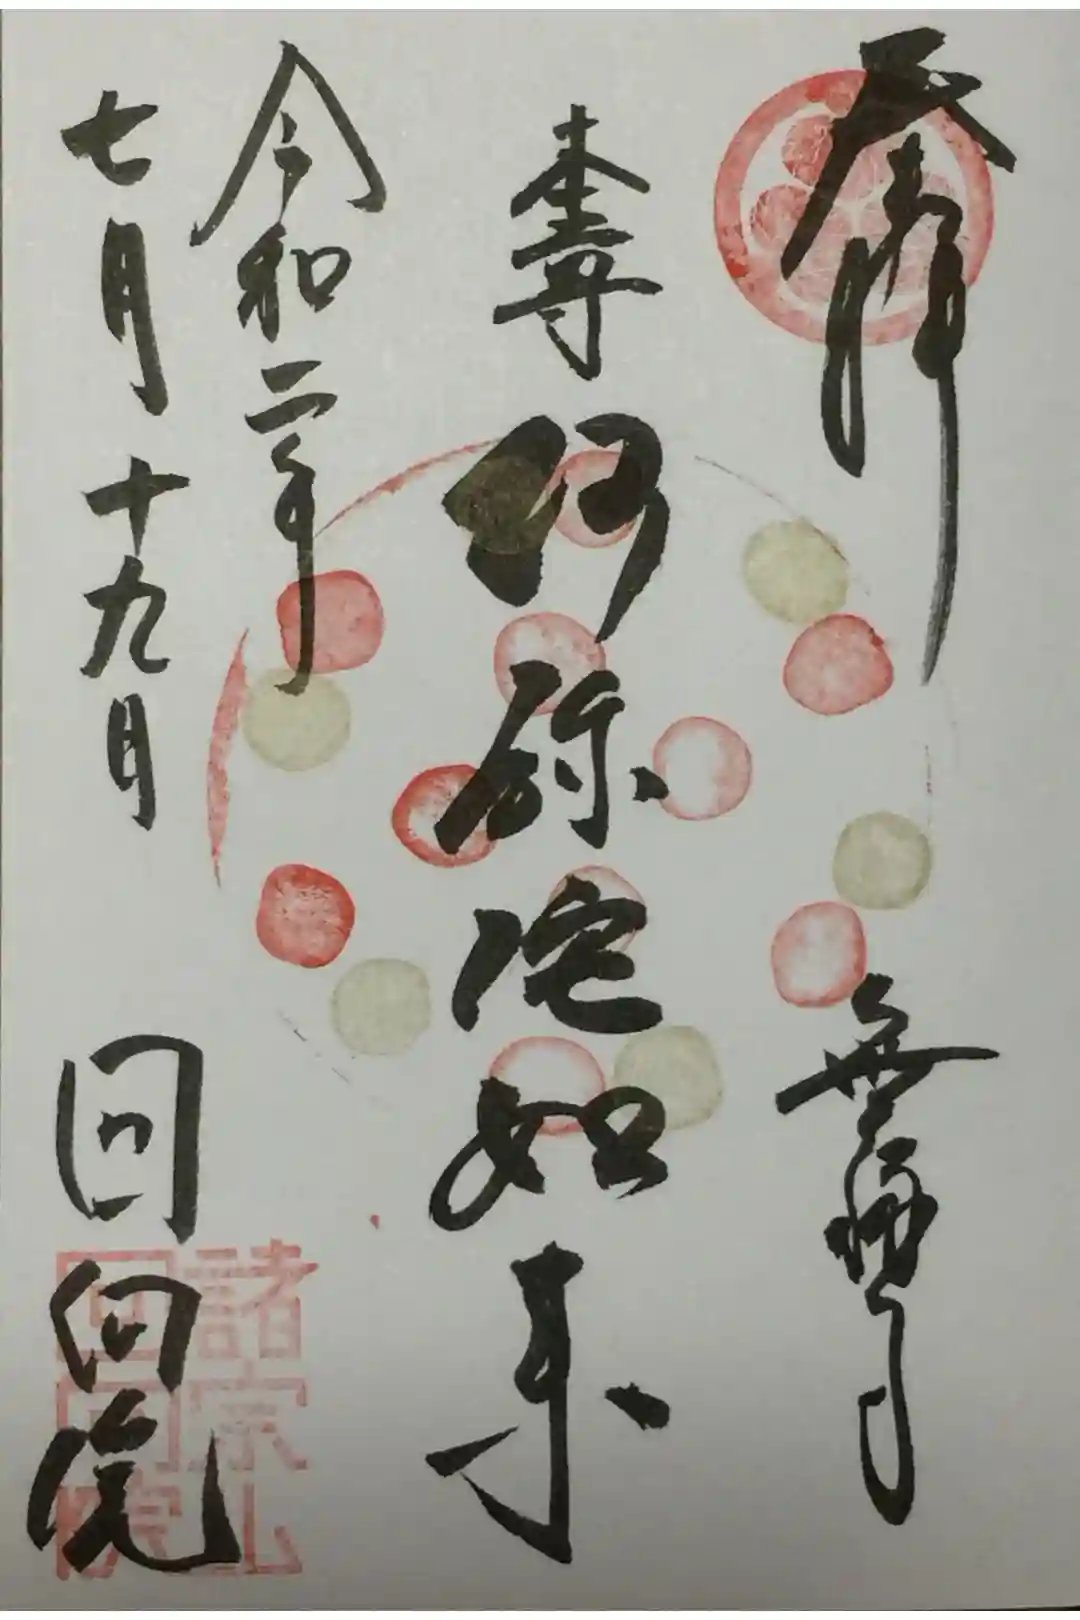 奉拝　無縁寺
本尊　阿弥陀如来
令和二年
七月十九日
回向院
諸宗山
回向院